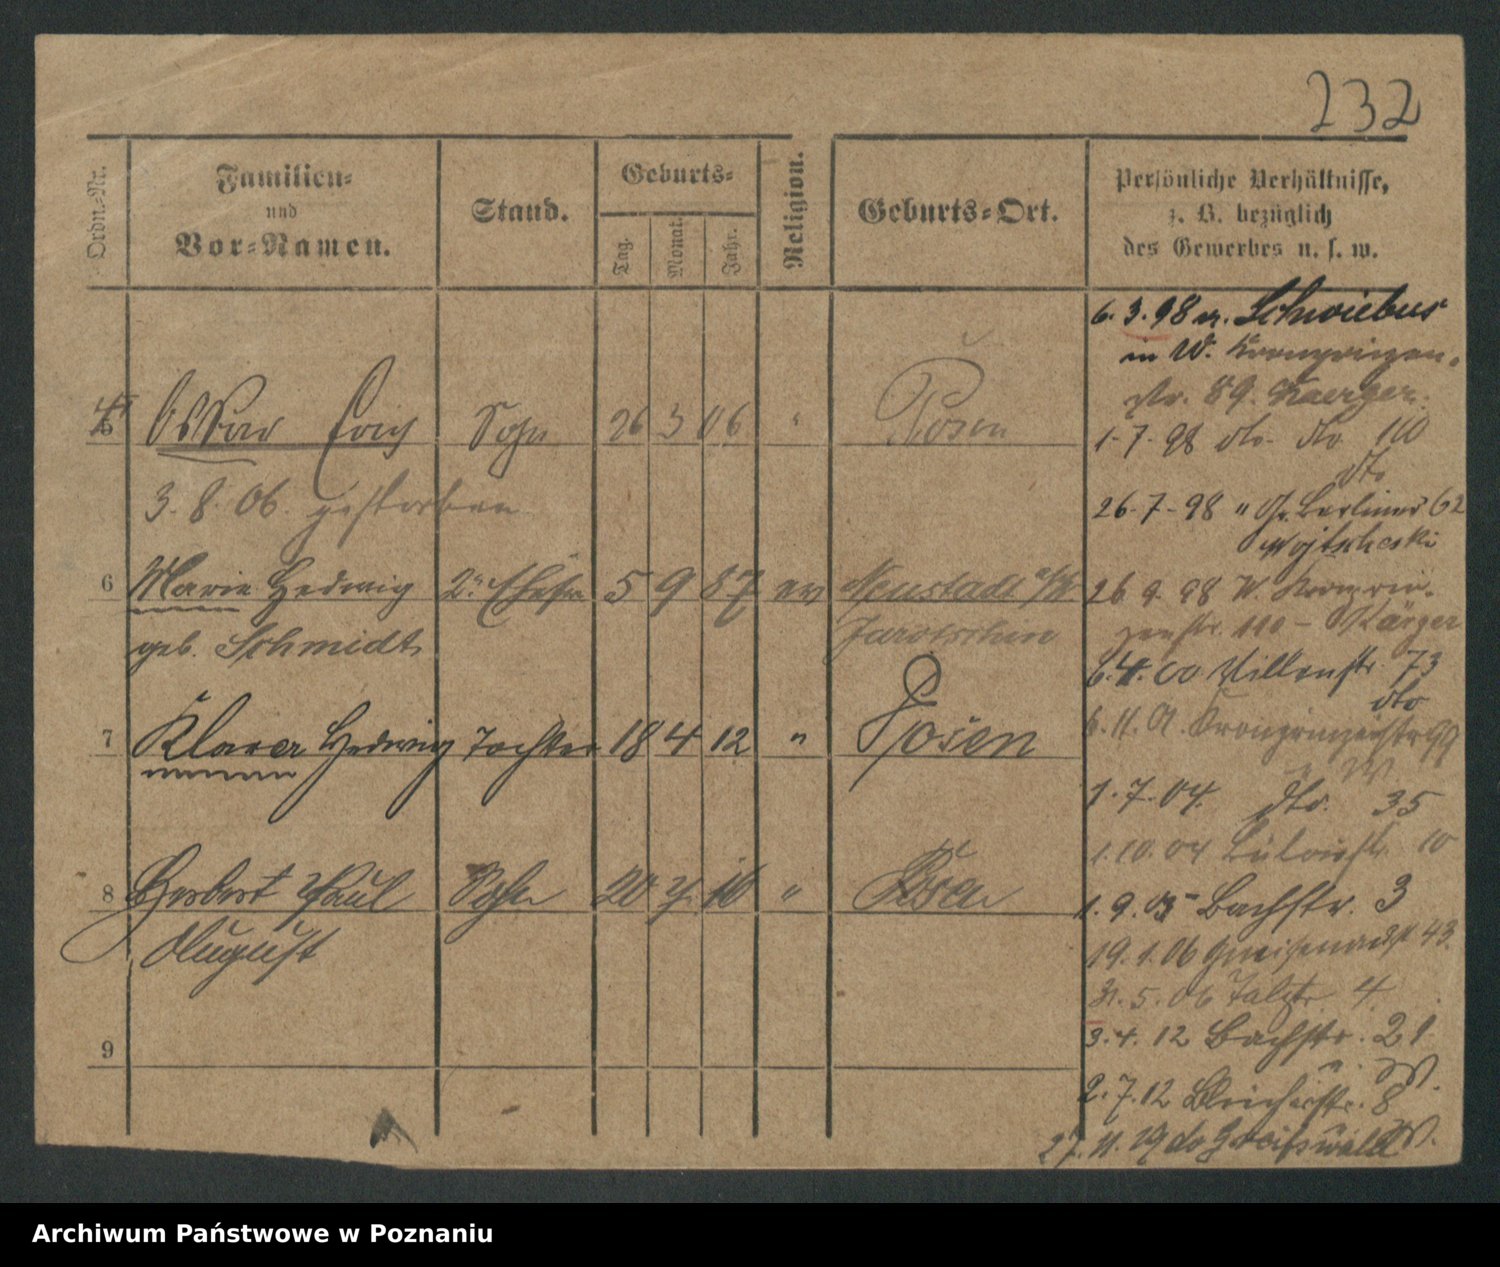 232
Ordn.-Nr.
Familien-
und
Vor-Namen.
Stand.
Geburts-
Tag.
Monat.
Jahr.
Religion.
Geburts-Ort.
Persönliche Verhältnisse,
z. B. bezüglich
des Gewerbes u. s. w.
6. 3. 98 n. Schwiebus
in W. Kronprinzen-
str. 89. Kaerger.
5 Oskar Erich Sohn 26 3 06 " Posen
1-7-98 dto. dto 110
dto
3. 8. 06. gestorben
26-7-98 " Gr. Berliner 62
Wojtscheski
6 Marie Hedwig 2. Ehefr 5 9 87 ev Neustadt a/W
26 9. 98 W. Kronprin-
zenstr. 110 - Kärger
geb. Schmidt Jarotschin
6. 4. 00 Villenstr. 73
dto
6. 11. 01. Kronprinzenstr 99
7 Klara Hedwig Tochter 18 4 12 " Posen
1. 7. 04. dto. 35
1. 10. 04 Bülowstr 10
8 Herbert Paul Sohn 20 7. 16 " Posen
1. 9. 05 Bachstr. 3
August
19. 1. 06 Gneisenaustr 43.
31. 5. 06 Talstr 4
3. 4. 12 Bachstr. 21
9
W.
2. 7. 12 Bleicherstr. 8
W.
27. 11. 19 do Greifswald
Archiwum Państwowe w Poznaniu